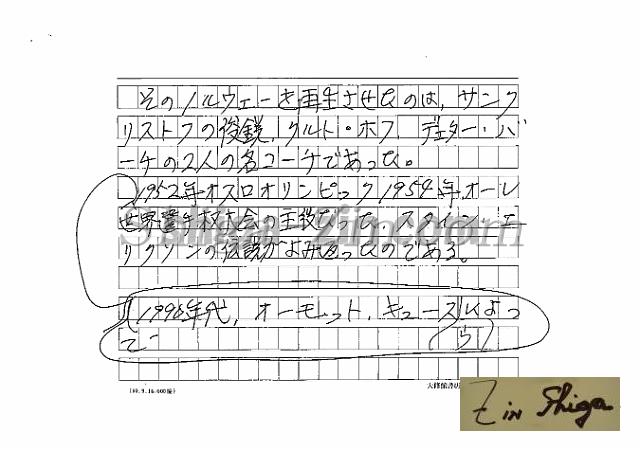 そのノルウェーを再生させたのは、サンク
リストフの俊鋭、クルト・ホフ、デェター・バ
ーチの2人の名コーチであった。
1952年オスロオリンピック1954年オーレ
世界選手権大会の主役だった、スタイン・エ
リクソンの伝説がよみがえったのである。
(1990年代、オーモット、キュースによっ
て
大修館書
Z in Shiga